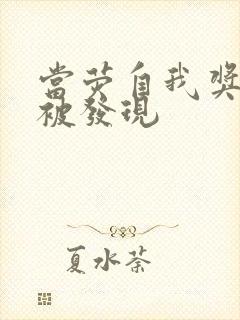 當荧自我獎
被發現
夏水荼